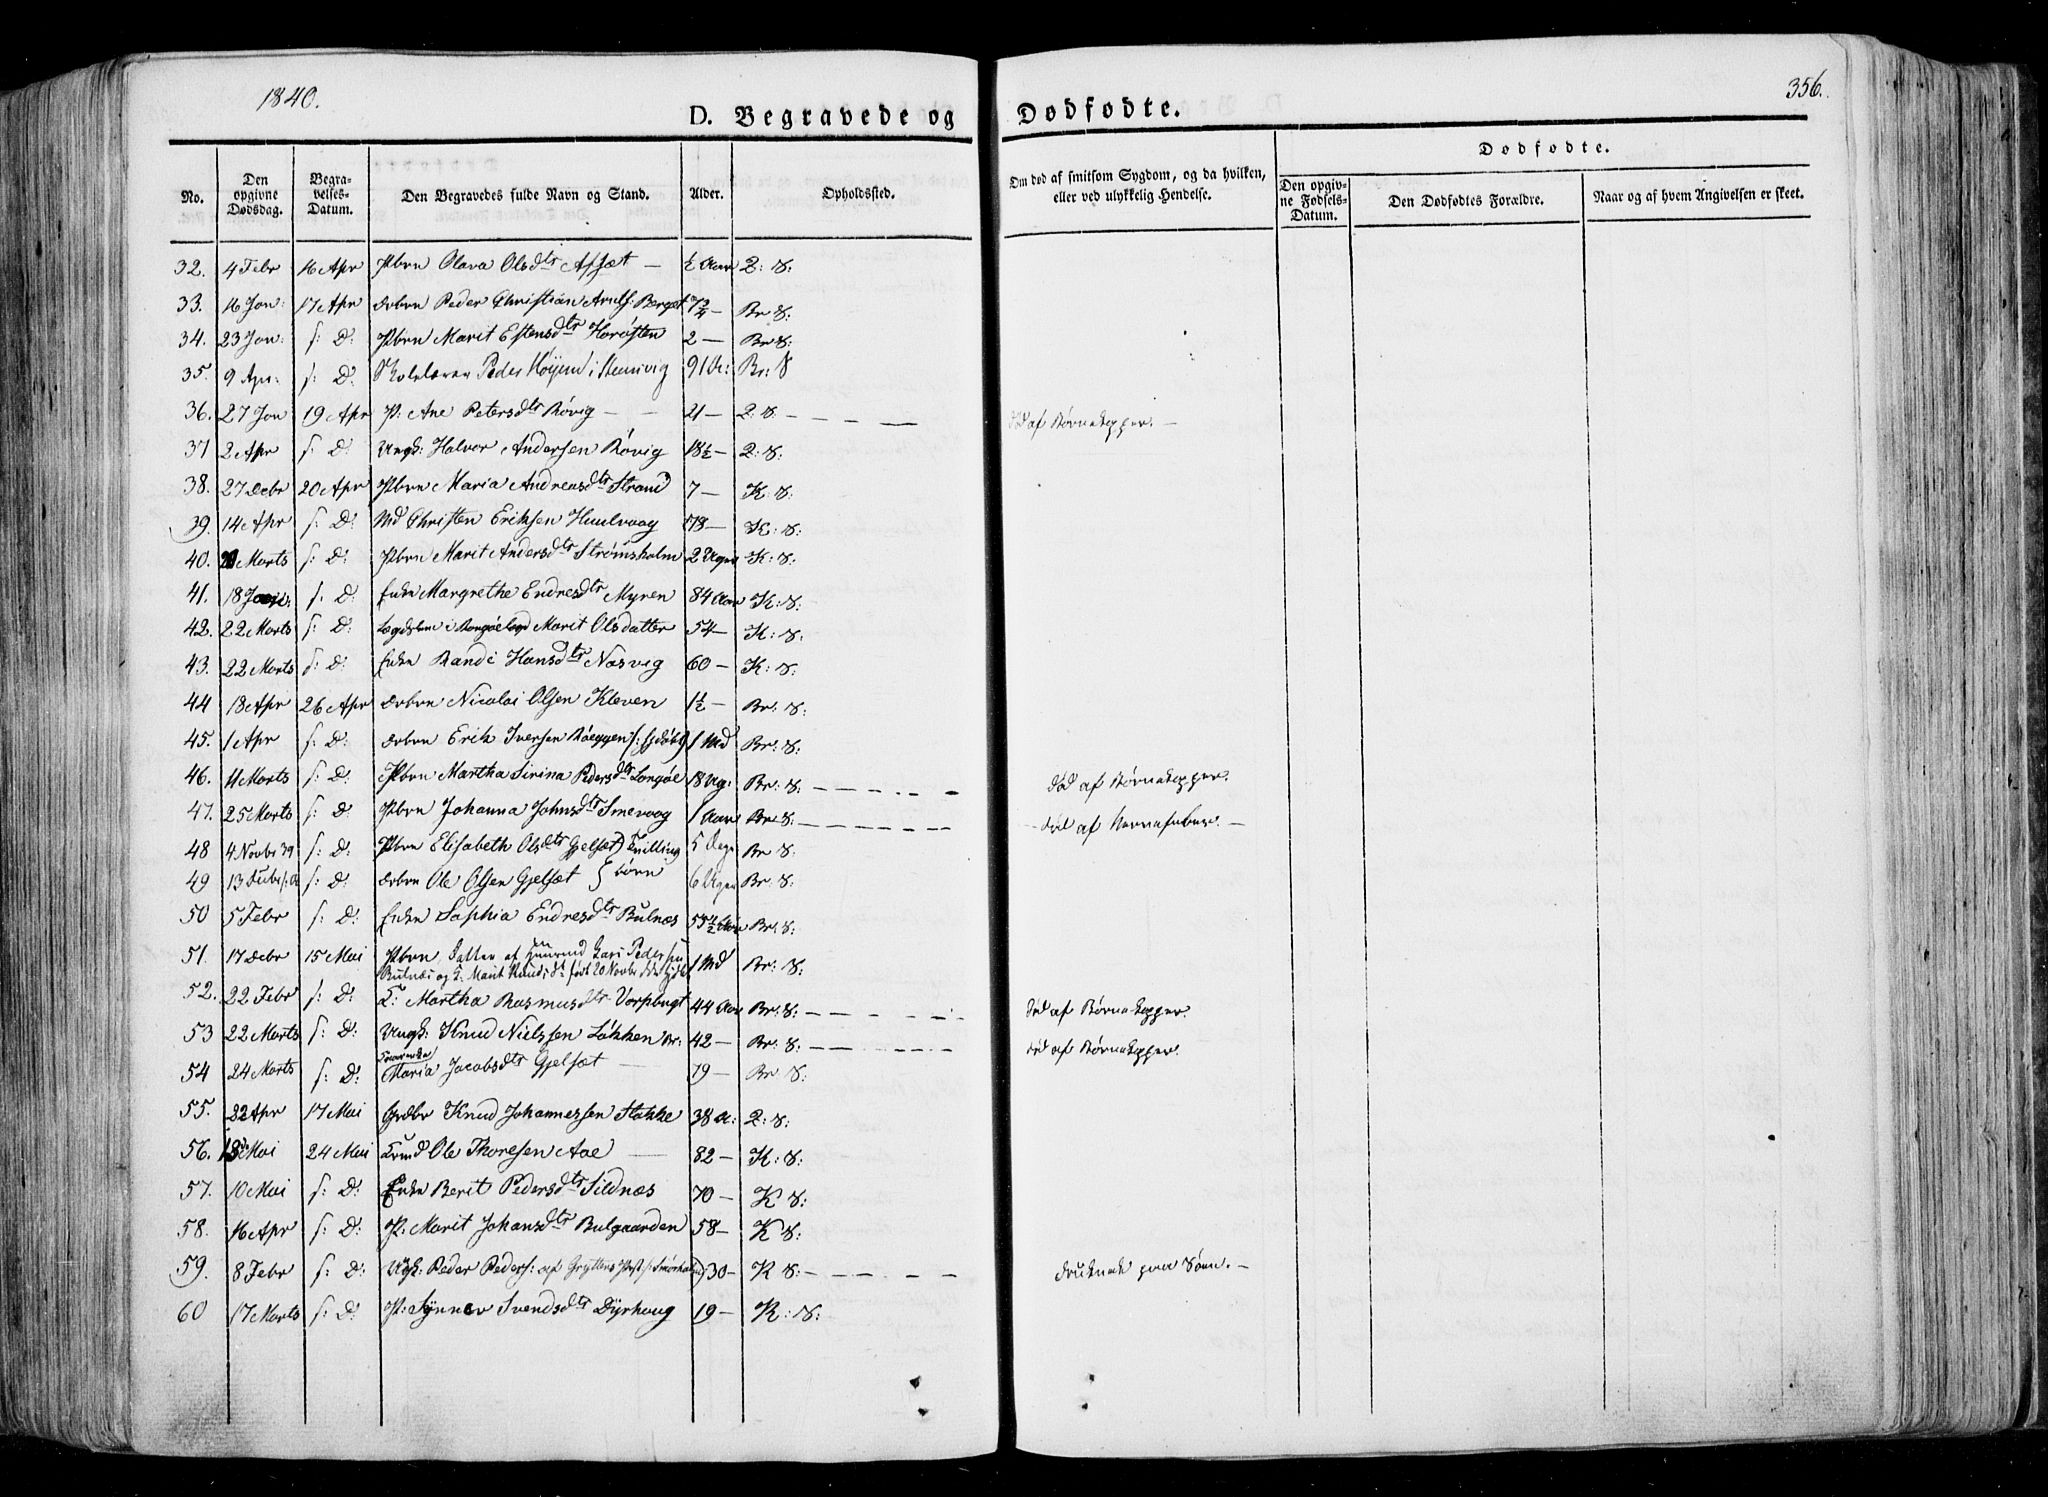 1840.
356.
D. Begravede og Dødfødte.
No.
Den opgivne Dødsdag.
Begravelses-Datum.
Den Begravedes fulde Navn og Stand.
Alder.
Opholdssted.
Om død af smitsom Sygdom, og da hvilken, eller ved ulykkelig Hendelse.
Dødfødte.
Den opgivne Fødsels-Datum.
Den Dødfødtes Forældre.
Naar og af hvem Angivelsen er skeet.
32. 4 Febr 16 Apr Pbrn Olava Olsdtr — ½ Aar Q: S:
33. 16 Jan: 17 Apr Drbrn Peder Christian Arnts: Berget 7¾ — Br S:
34. 23 Jan: s: D: Pbrn Marit Estensdtr Harøsten 2 — Br S:
35. 9 Apr: s: D: Skolelærer Peder Høyem i Stemvig 91 A: Br: S
36. 27 Jan 19 Apr P: Ane Petersdtr Røvig — 21 — Q: S. — død af Børnekopper. —
37 2 Apr s: D: Ungk: Halvor Andersen Røvig 18½ — Q: S:
38. 27 Debr 20 Apr Pbrn Maria Andreasdtr Strand 7 — K: S:
39. 14 Apr s: D: Md Christen Eriksen Huulvaag 78 — K: S:
40. Marts s: D: Pbrn Marit Andersdtr Strømsholm 2 Uger K: S:
41. 18 s: D: Enke Margrethe Endresdtr Myren 84 Aar K: S:
42. 22 Marts s: D: Lægdslem i Marit Olsdatter 54 — K: S:
43. 22 Marts s: D: Enke Randi Hansdtr Nasvig 60 — K: S:
44 18 Apr 26 Apr Drbrn Nicolai Olsen Kleven 1½ — Br: S:
45. 1 Apr s: D: Drbrn Erik Iversen Røeggen /: hjdøbt 1 Md Br: S:
46. 11 Marts s: D: Pbrn Martha Sirina Pedersdtr Longøe 18 Ug: Br: S: — død af Børnekopper.
47. 25 Marts s: D Pbrn Johanna Johnsdtr Smevaag 1 Aar Br S: — død af Nervefeber. —
48 4 Novbr 39 s: D: Pbrn Elisabeth Olsdtr Gjelsæt } Tvilling 5 Dage Br S:
49 13 s: D: Drbrn Ole Olsen Gjelsæt } børn 6 Uger Br: S:
50 5 Febr s: D: Enke Sophia Endresdtr Bulnæs 53½ Aar Br: S:
51. 17 Debr 15 Mai Pbrn Datter af Lars Pedersen
Bulnæs og K: Marit Knudsdt født 20 Novbr 1 Md Br: S:
52. 22 Febr s: D: K: Martha Rasmusdtr Vorpbugt 44 Aar Br: S: — død af Børnekopper.
53 22 Marts s: D: Ungk: Knud Nielssen Løkken 42 — Br: S: — død af Børnekopper.
54 24 Marts s: D: Maria Jacobsdtr Gjelsæt — 19 — Br S:
55. 22 Apr 17 Mai Grdbr Knud Johannessen Stakke 38 A: Q: S:
56. Mai 24 Mai Ole Thoresen Aae — 82 — K: S:
57. 10 Mai s: D: Enke Berit Pedersdtr Sildnæs 70 — K S:
58. 16 Apr s: D: P: Marit Johansdtr Bulgaarden 58 — K S:
59. 8 Febr s: D: Ugk: Peder Peders: af Gryttens Pst /: Smørholm) 30 — K S: — druknede paa Søen. —
60 17 Marts s: D: P: Synnev Svendsdtr Dyrhoug 19 — K: S: